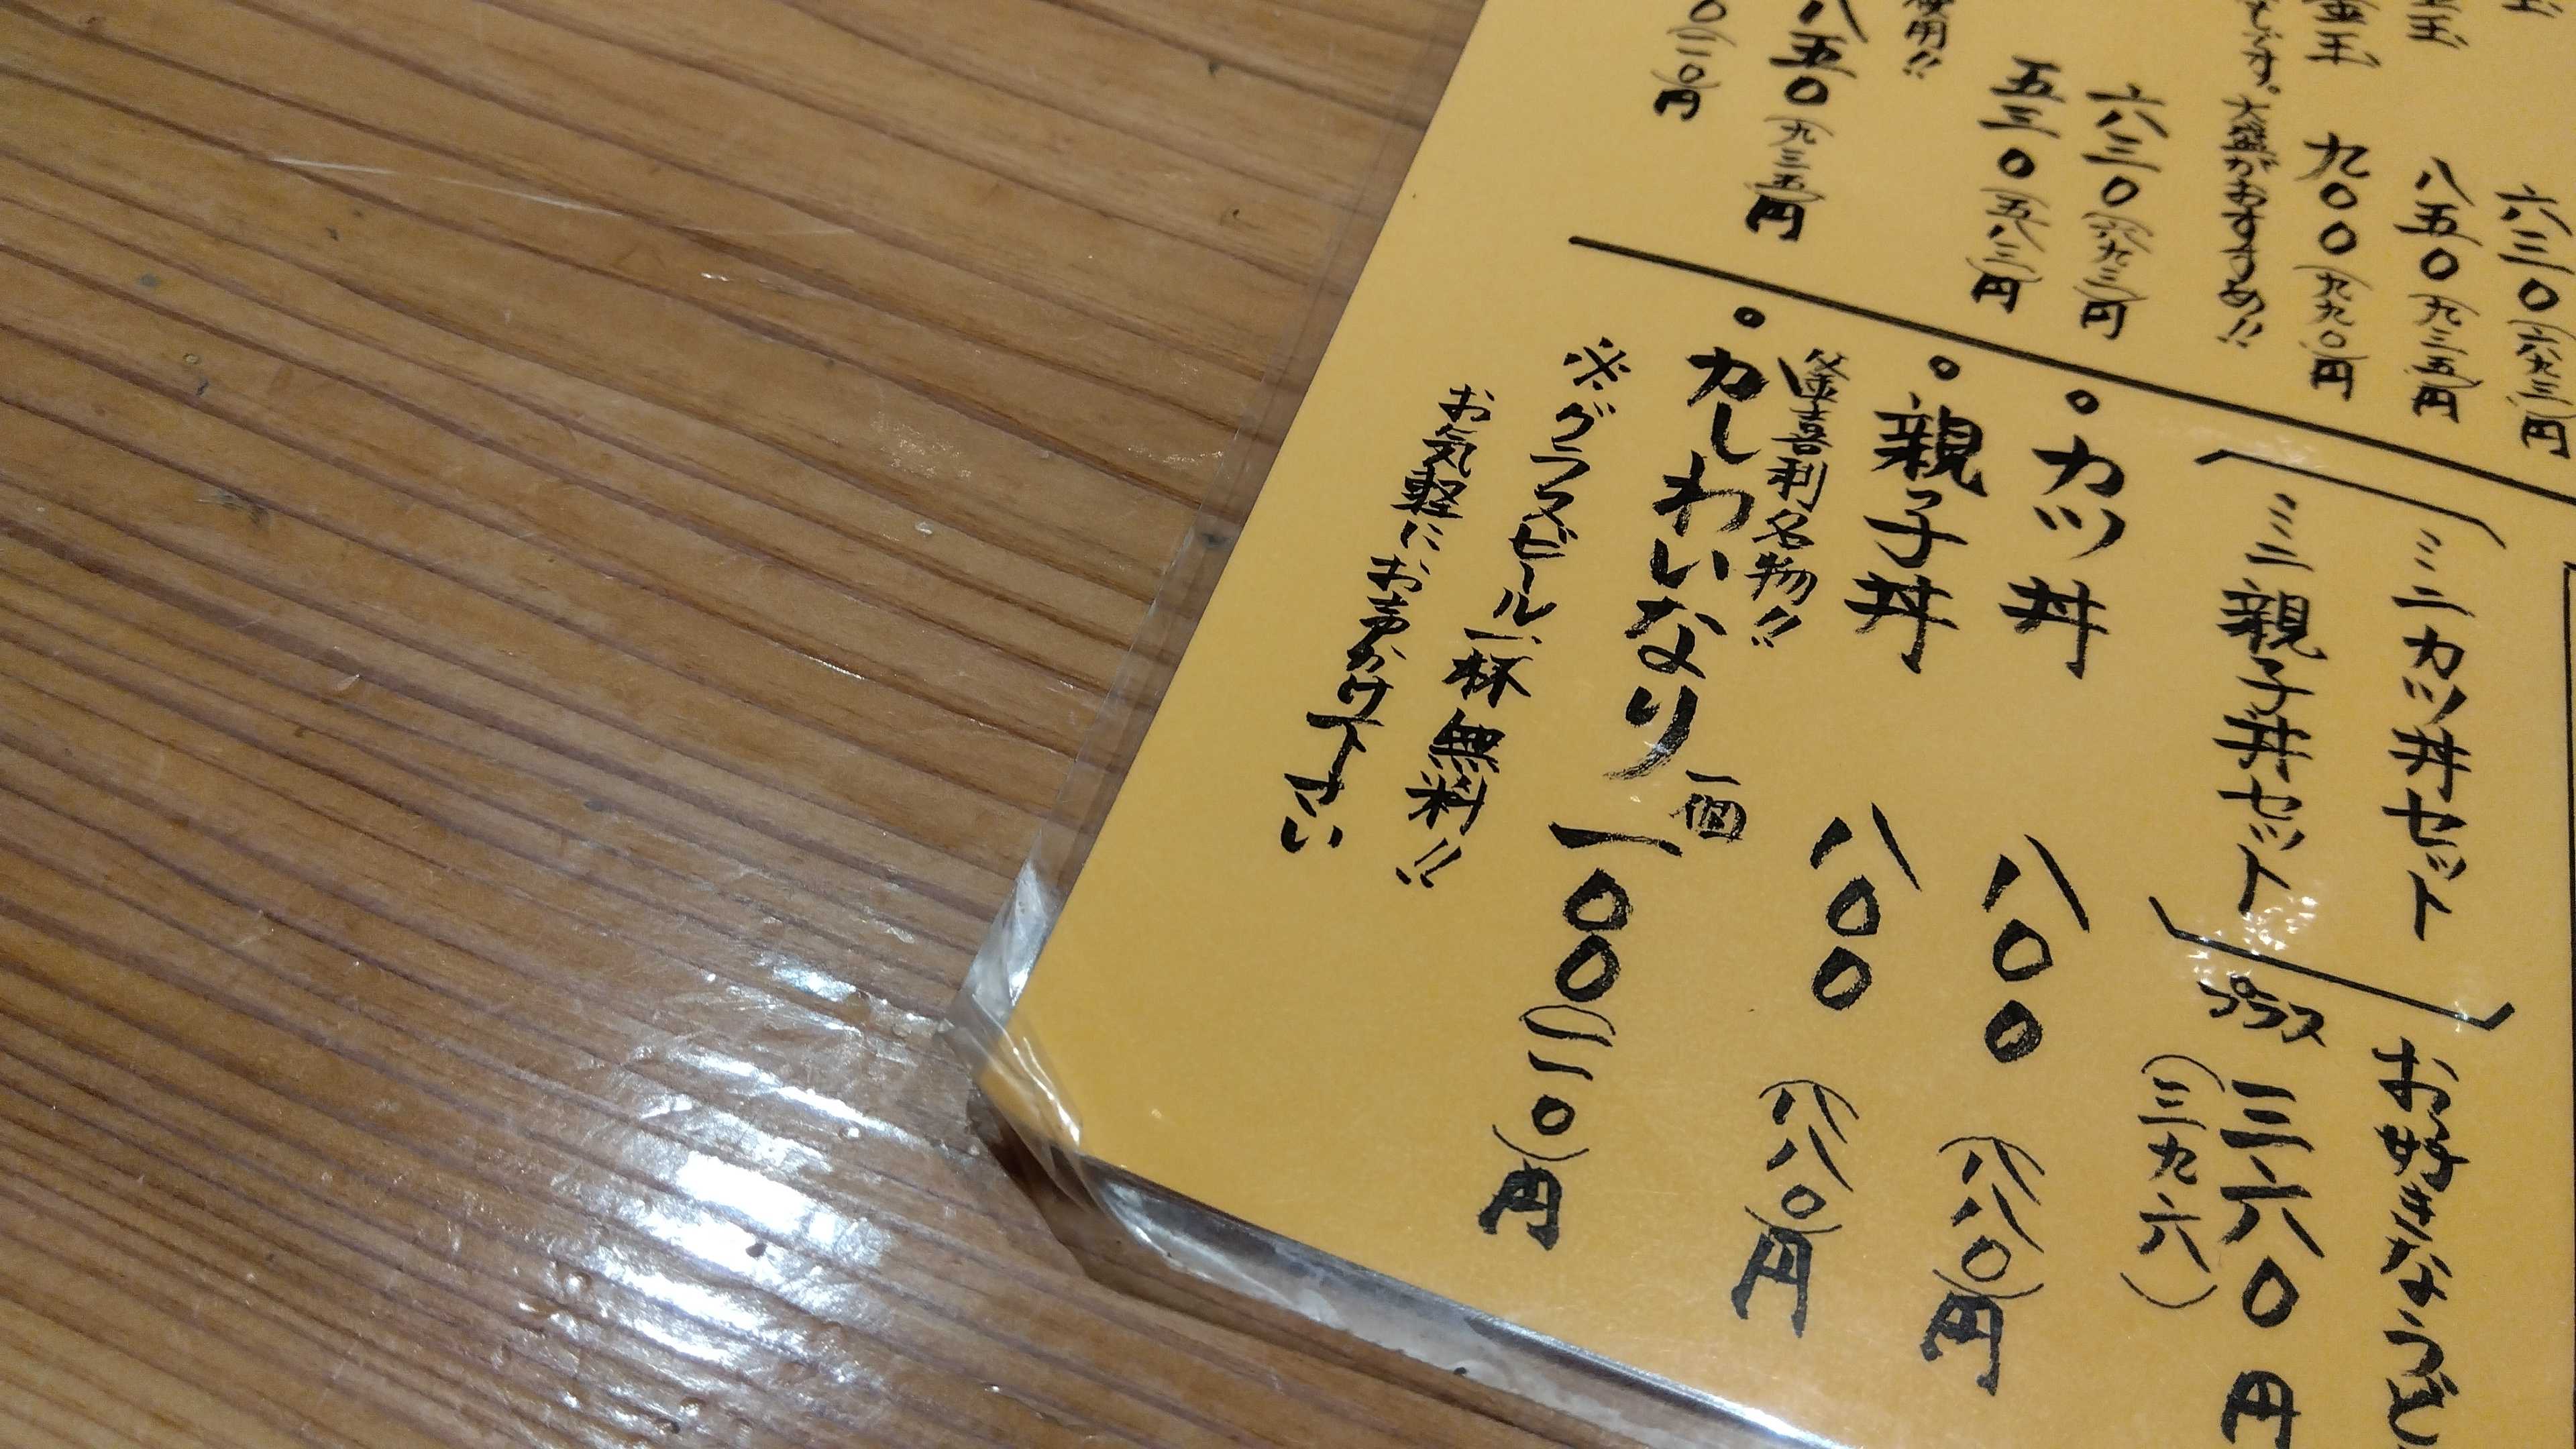 玉 六三〇(六九三)円
玉 八五〇(九三五)円
釜玉 九〇〇(九九〇)円
です。大盛がおすすめ!!
六三〇(六九三)円
五三〇(五八三)円
使用!!
八五〇(九三五)円
〇(一一〇)円
ミニカツ丼セット お好きなうど
ミニ親子丼セット プラス三六〇円
(三九六)
・カツ丼 八〇〇(八八〇)円
・親子丼 八〇〇(八八〇)円
釜喜利名物!!
・かしわいなり 一個 一〇〇(一一〇)円
※グラスビール一杯無料!!
お気軽にお声かけ下さい